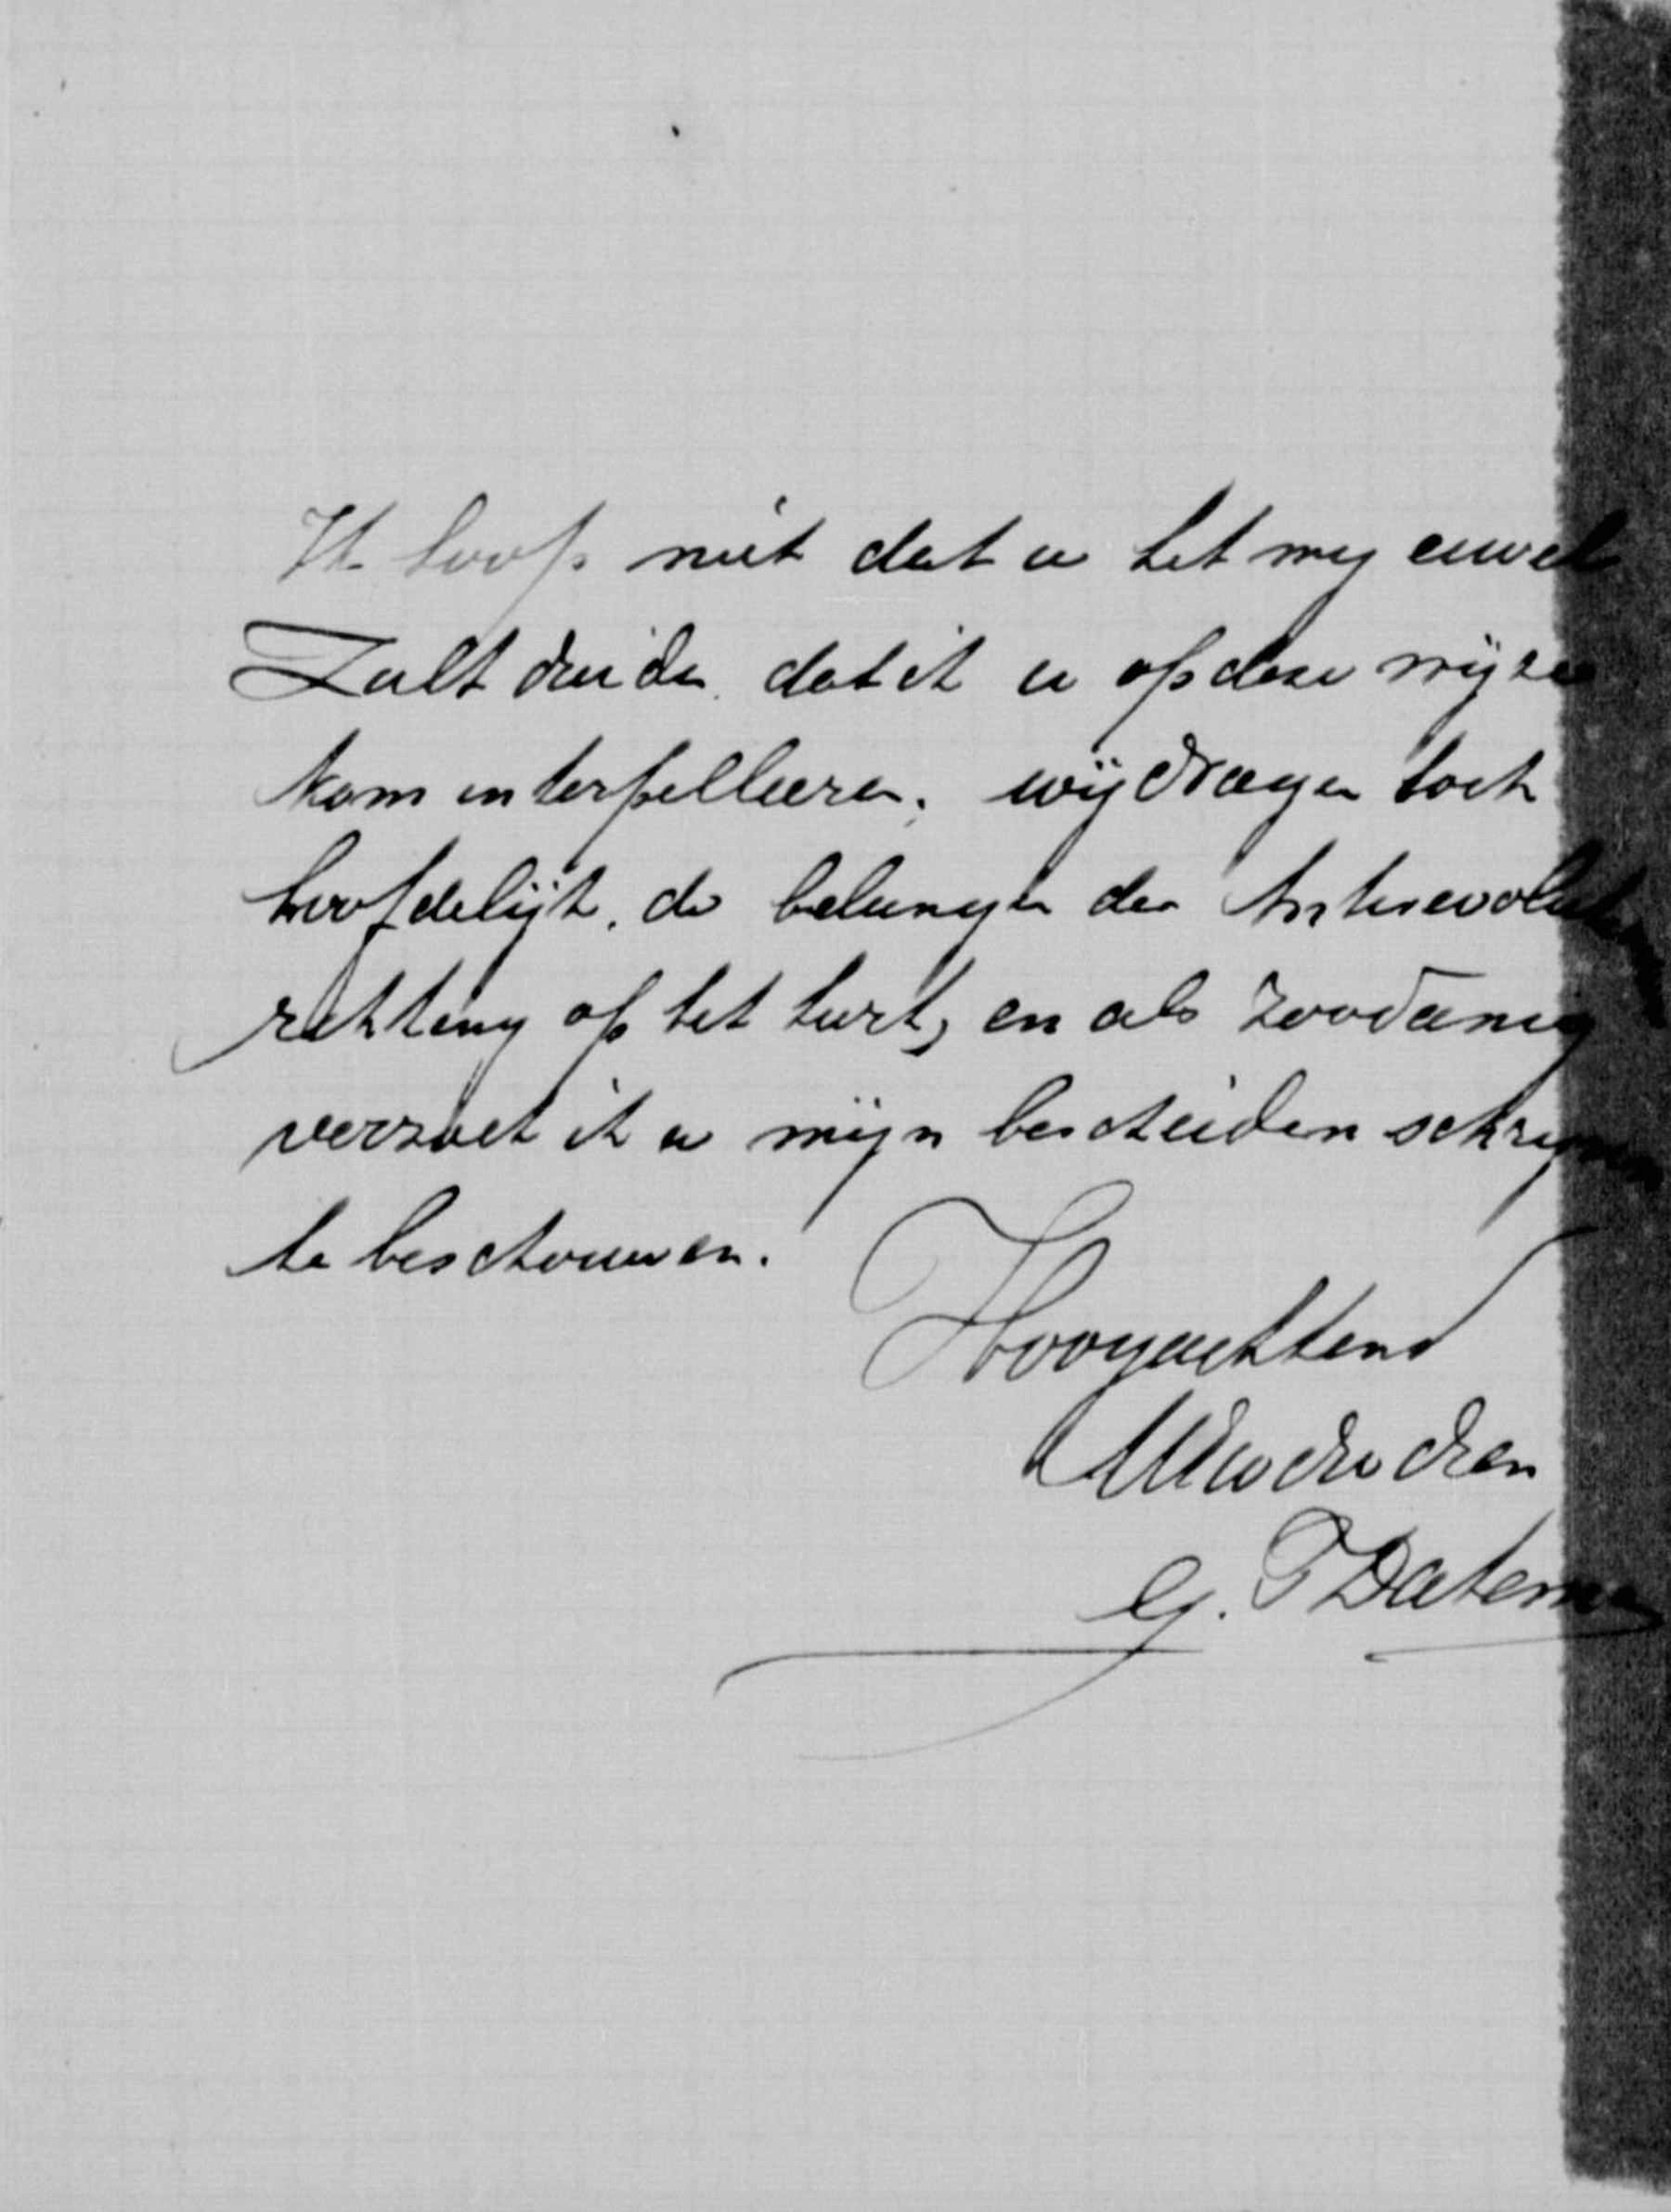 Ik hoop niet dat u het mij euvel
Zult duiden dat ik u op deze wijze
kom interpelleeren, wij dragen toch
hoofdelijk, de belangen der Antirevolut
richting op het hart, en als zoodanig
verzoek ik u mijn bescheiden schrijven
te beschouwen.
Hoogachtend
UEw dw dien
G. Datema